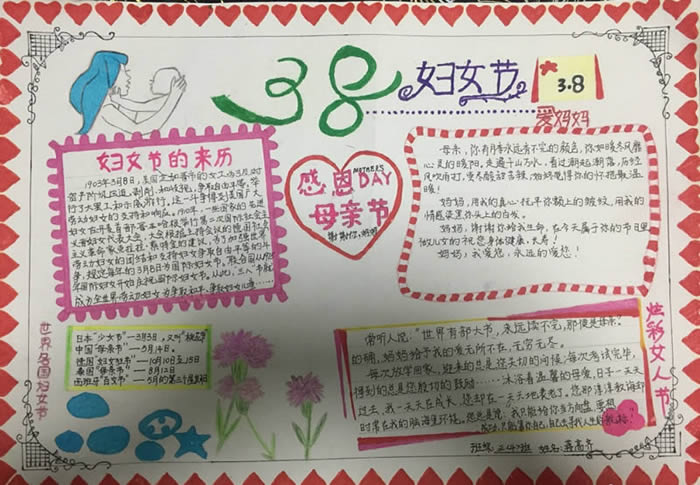 38 妇女节
3.8
爱妈妈
妇女节的来历
1903年3月8日，美国芝加哥市的女工为了反对
资产阶级压迫、剥削和歧视，争取自由平等，举
行了大罢工和示威游行，这一斗争得到美国广大
劳动妇女的支持和响应。1910年，一些国家的先进
妇女在丹麦首都哥本哈根举行第二次国际社会主
感恩
MOTHER'S
DAY
母亲节
谢谢你，妈妈
母亲，你有月季永远看不完的颜色，你如暖冬风靡
心灵的暖阳，走遍千山万水，看过潮起潮落，历经
风吹雨打，更尽酸甜苦辣，始终觉得你的怀抱最温
暖！
妈妈，用我的真心抚平你额上的皱纹，用我的
情感染黑你头上的白发。
妈妈，谢谢你给我生命，在今天属于你的节日里
做儿女的祝您身体健康，长寿！
妈妈，我爱您，永远的爱您！
世界各国妇女节
日本“少女节”——3月3日，又叫“桃花节”
中国“母亲节”——5月14日。
德国“妇女狂节”——10月10至15日
泰国“母亲节”——8月12日
西班牙“自女节”——5月的第三个星期日
常听人说：“世界有部大书，永远读不完，那便是母亲。”
的确，妈妈给予我的爱无所不在，无穷无尽。
每次放学回家，迎来的总是您关切的问候；每次考试完毕，
得到的总是您殷切的鼓励……沐浴着温馨的母爱，日子一天天
过去，我一天天在成长，您却在一天天地衰老了。您那谆谆教诲却
时常在我的脑海里环绕。
炫彩女人节
班级：三(4)班 姓名：